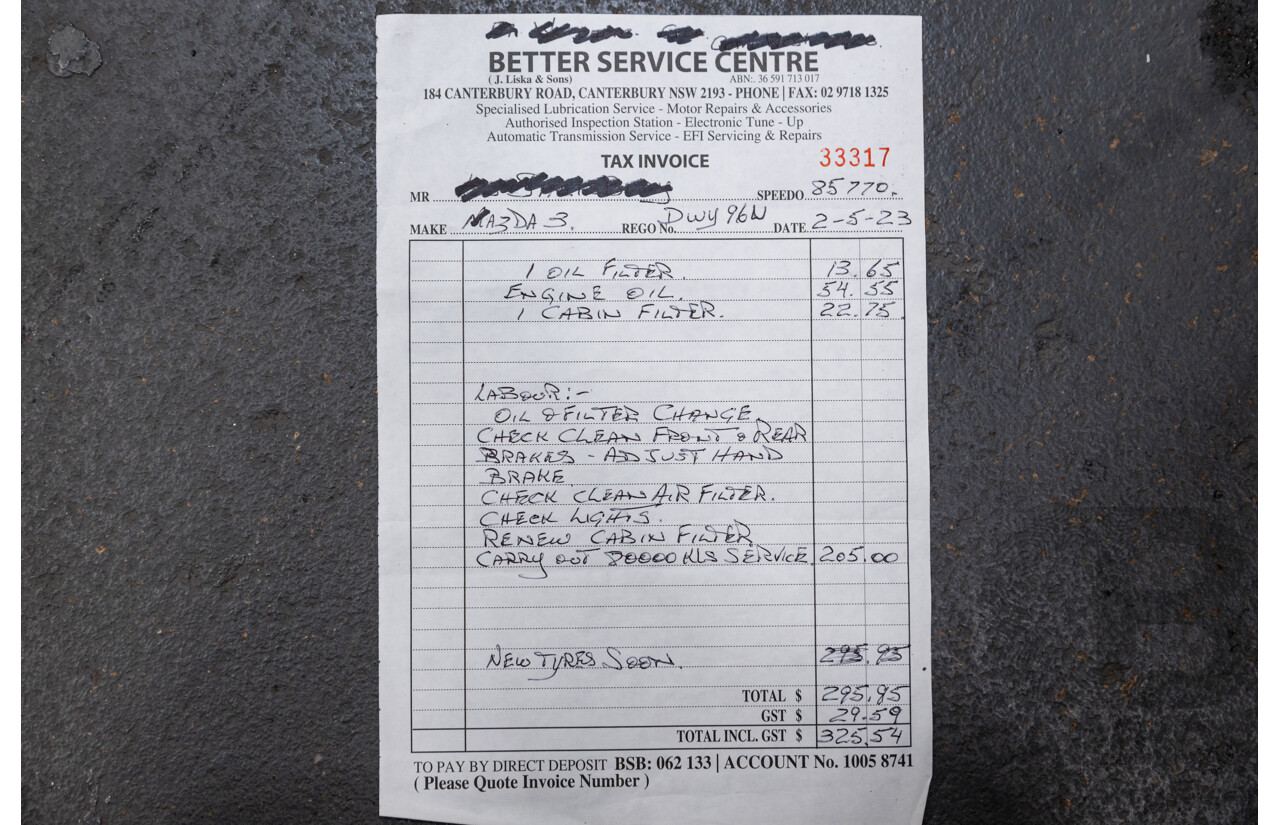 BETTER SERVICE CENTRE
( J. Liska & Sons) ABN:. 36 591 713 017
184 CANTERBURY ROAD, CANTERBURY NSW 2193 - PHONE | FAX: 02 9718 1325
Specialised Lubrication Service - Motor Repairs & Accessories
Authorised Inspection Station - Electronic Tune - Up
Automatic Transmission Service - EFI Servicing & Repairs
TAX INVOICE 33317
MR SPEEDO 85770.
MAKE MAZDA 3. REGO No. DWY96W DATE 2-5-23
1 OIL FILTER. 13.65
ENGINE OIL. 54.55
1 CABIN FILTER. 22.75
LABOUR:-
OIL & FILTER CHANGE
CHECK CLEAN FRONT & REAR
BRAKES - ADJUST HAND
BRAKE
CHECK CLEAN AIR FILTER.
CHECK LIGHTS.
RENEW CABIN FILTER
CARRY OUT 80000 KLS SERVICE 205.00
NEW TYRES SOON. 295.95
TOTAL $ 295.95
GST $ 29.59
TOTAL INCL. GST $ 325.54
TO PAY BY DIRECT DEPOSIT BSB: 062 133 | ACCOUNT No. 1005 8741
( Please Quote Invoice Number )